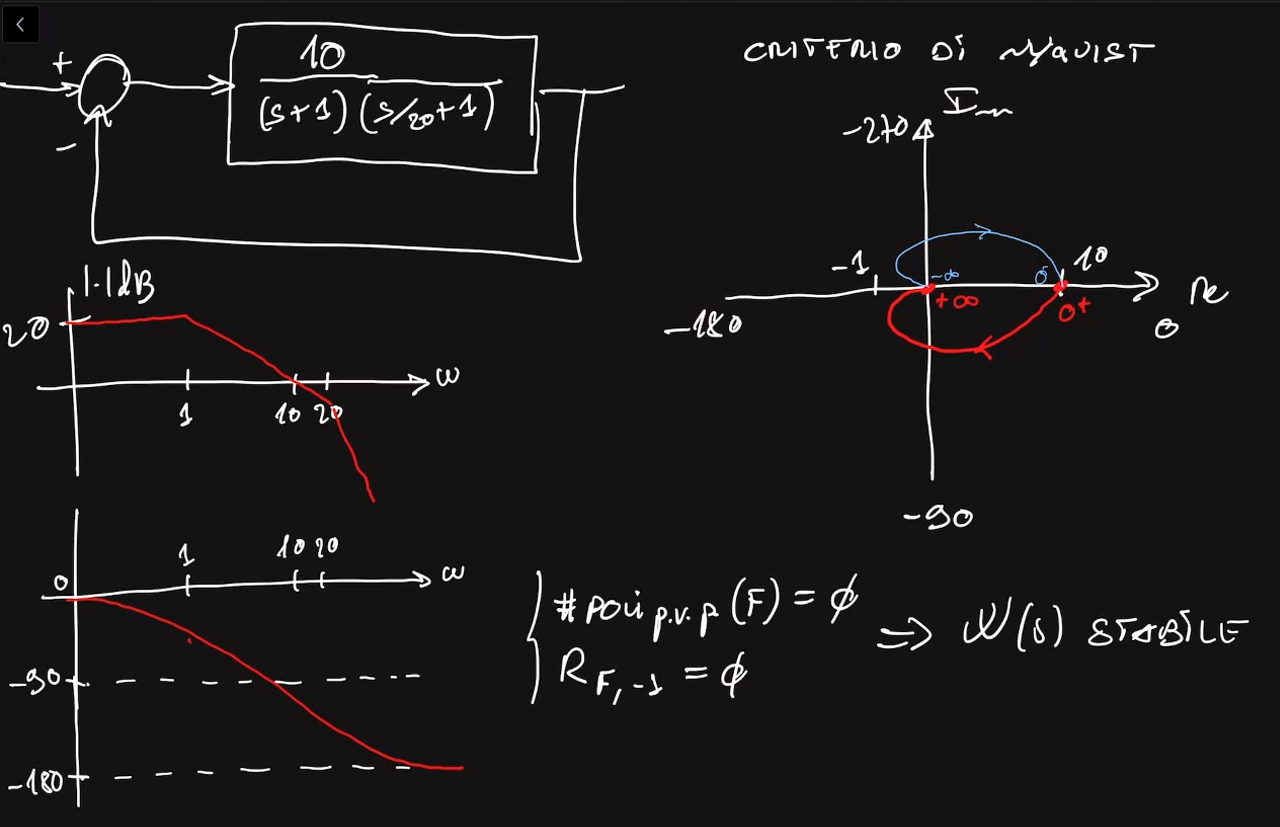 +
10
(s+1)(s/20+1)
-
CRITERIO DI NYQUIST
Im
-270
-1
10
-∞
0-
+∞
0+
Re
-180
0
-90
|·|dB
20
ω
1 10 20
1 10 20
0
ω
-90
-180
# poli p.v.p (F) = ϕ
R F,-1 = ϕ
=> W(s) STABILE